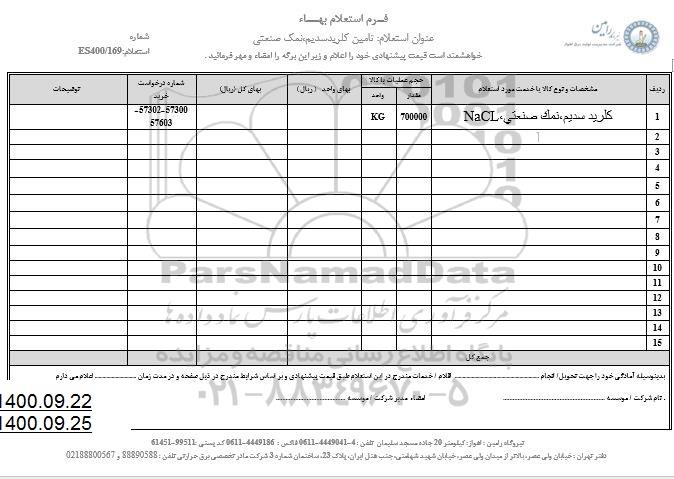 فـــرم استعلام بهـــاء
عنوان استعلام: تامین کلریدسدیم،نمک صنعتی
شماره
استعلام:ES400/169
خواهشمند است قیمت پیشنهادی خود را اعلام و زیر این برگه را امضاء و مهر فرمائید .
ردیف
مشخصات و نوع کالا یا خدمت مورد استعلام
حجم عملیات یا کالا
مقدار
واحد
بهای واحد ( ریال)
بهای کل (ریال)
شماره درخواست خرید
توضیحات
1
کلرید سدیم،نمك صنعتي،NaCL
700000
KG
57300-57302-
57603
2
3
4
5
6
7
8
9
10
11
12
13
14
15
ParsNamadData
مرکز فرآوری اطلاعات پارس نماد داده ها
جمع کل
پایگاه اطلاع رسانی مناقصه و مزایده
بدینوسیله آمادگی خود را جهت تحویل/ انجام .................... اقلام / خدمات مندرج در این استعلام طبق قیمت پیشنهادی و بر اساس شرایط مندرج در ذیل صفحه و در مدت زمان .................... اعلام می دارم
۰۲۱-۸۸۳۴۹۶۷۰-۵
. نام شرکت / موسسه ....................
امضاء مدیر شرکت / موسسه ....................
1400.09.22
1400.09.25
نیروگاه رامین : اهواز: کیلومتر 20 جاده مسجد سلیمان تلفن : 4-4449041-0611 فاکس : 4449186-0611 کد پستی :99511-61451
دفتر تهران : خیابان ولی عصر، بالاتر از میدان ولی عصر، خیابان شهید شهامتی، جنب هتل ایران، پلاک 23، ساختمان شماره 3 شرکت مادر تخصصی برق حرارتی تلفن : 88890588 و 02188800567